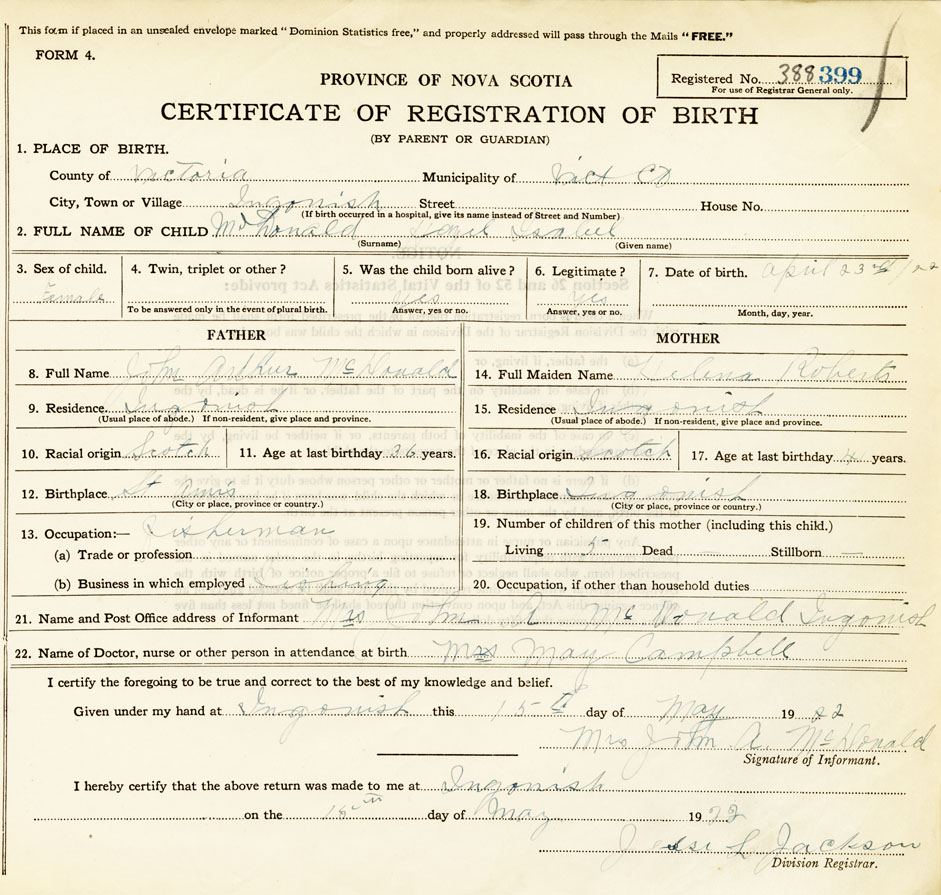 This form if placed in an unsealed envelope marked "Dominion Statistics free," and properly addressed will pass through the Mails "FREE."
FORM 4.
Registered No. 388399
For use of Registrar General only.
PROVINCE OF NOVA SCOTIA
CERTIFICATE OF REGISTRATION OF BIRTH
(BY PARENT OR GUARDIAN)
1. PLACE OF BIRTH.
County of Victoria Municipality of Vict Co
City, Town or Village Ingonish Street House No.
(If birth occurred in a hospital, give its name instead of Street and Number)
2. FULL NAME OF CHILD McDonald Isabel
(Surname) (Given name)
3. Sex of child. 4. Twin, triplet or other? 5. Was the child born alive? 6. Legitimate? 7. Date of birth. April 23rd / 22
Female yes yes
To be answered only in the event of plural birth. Answer, yes or no. Answer, yes or no. Month, day, year.
FATHER
8. Full Name John Arthur McDonald
9. Residence. Ingonish
(Usual place of abode.) If non-resident, give place and province.
10. Racial origin Scotch 11. Age at last birthday 36 years.
12. Birthplace St Anns
(City or place, province or country.)
13. Occupation:— Fisherman
(a) Trade or profession
(b) Business in which employed Fishing
MOTHER
14. Full Maiden Name Helena Roberts
15. Residence Ingonish
(Usual place of abode.) If non-resident, give place and province.
16. Racial origin Scotch 17. Age at last birthday years.
18. Birthplace Ingonish
(City or place, province or country.)
19. Number of children of this mother (including this child.)
Living 5 Dead — Stillborn —
20. Occupation, if other than household duties
21. Name and Post Office address of Informant Mrs John A McDonald Ingonish
22. Name of Doctor, nurse or other person in attendance at birth Mrs May Campbell
I certify the foregoing to be true and correct to the best of my knowledge and belief.
Given under my hand at Ingonish this 15th day of May 1922
Mrs John A. McDonald
Signature of Informant.
I hereby certify that the above return was made to me at Ingonish
on the 15th day of May 1922
Jesse L Jackson
Division Registrar.